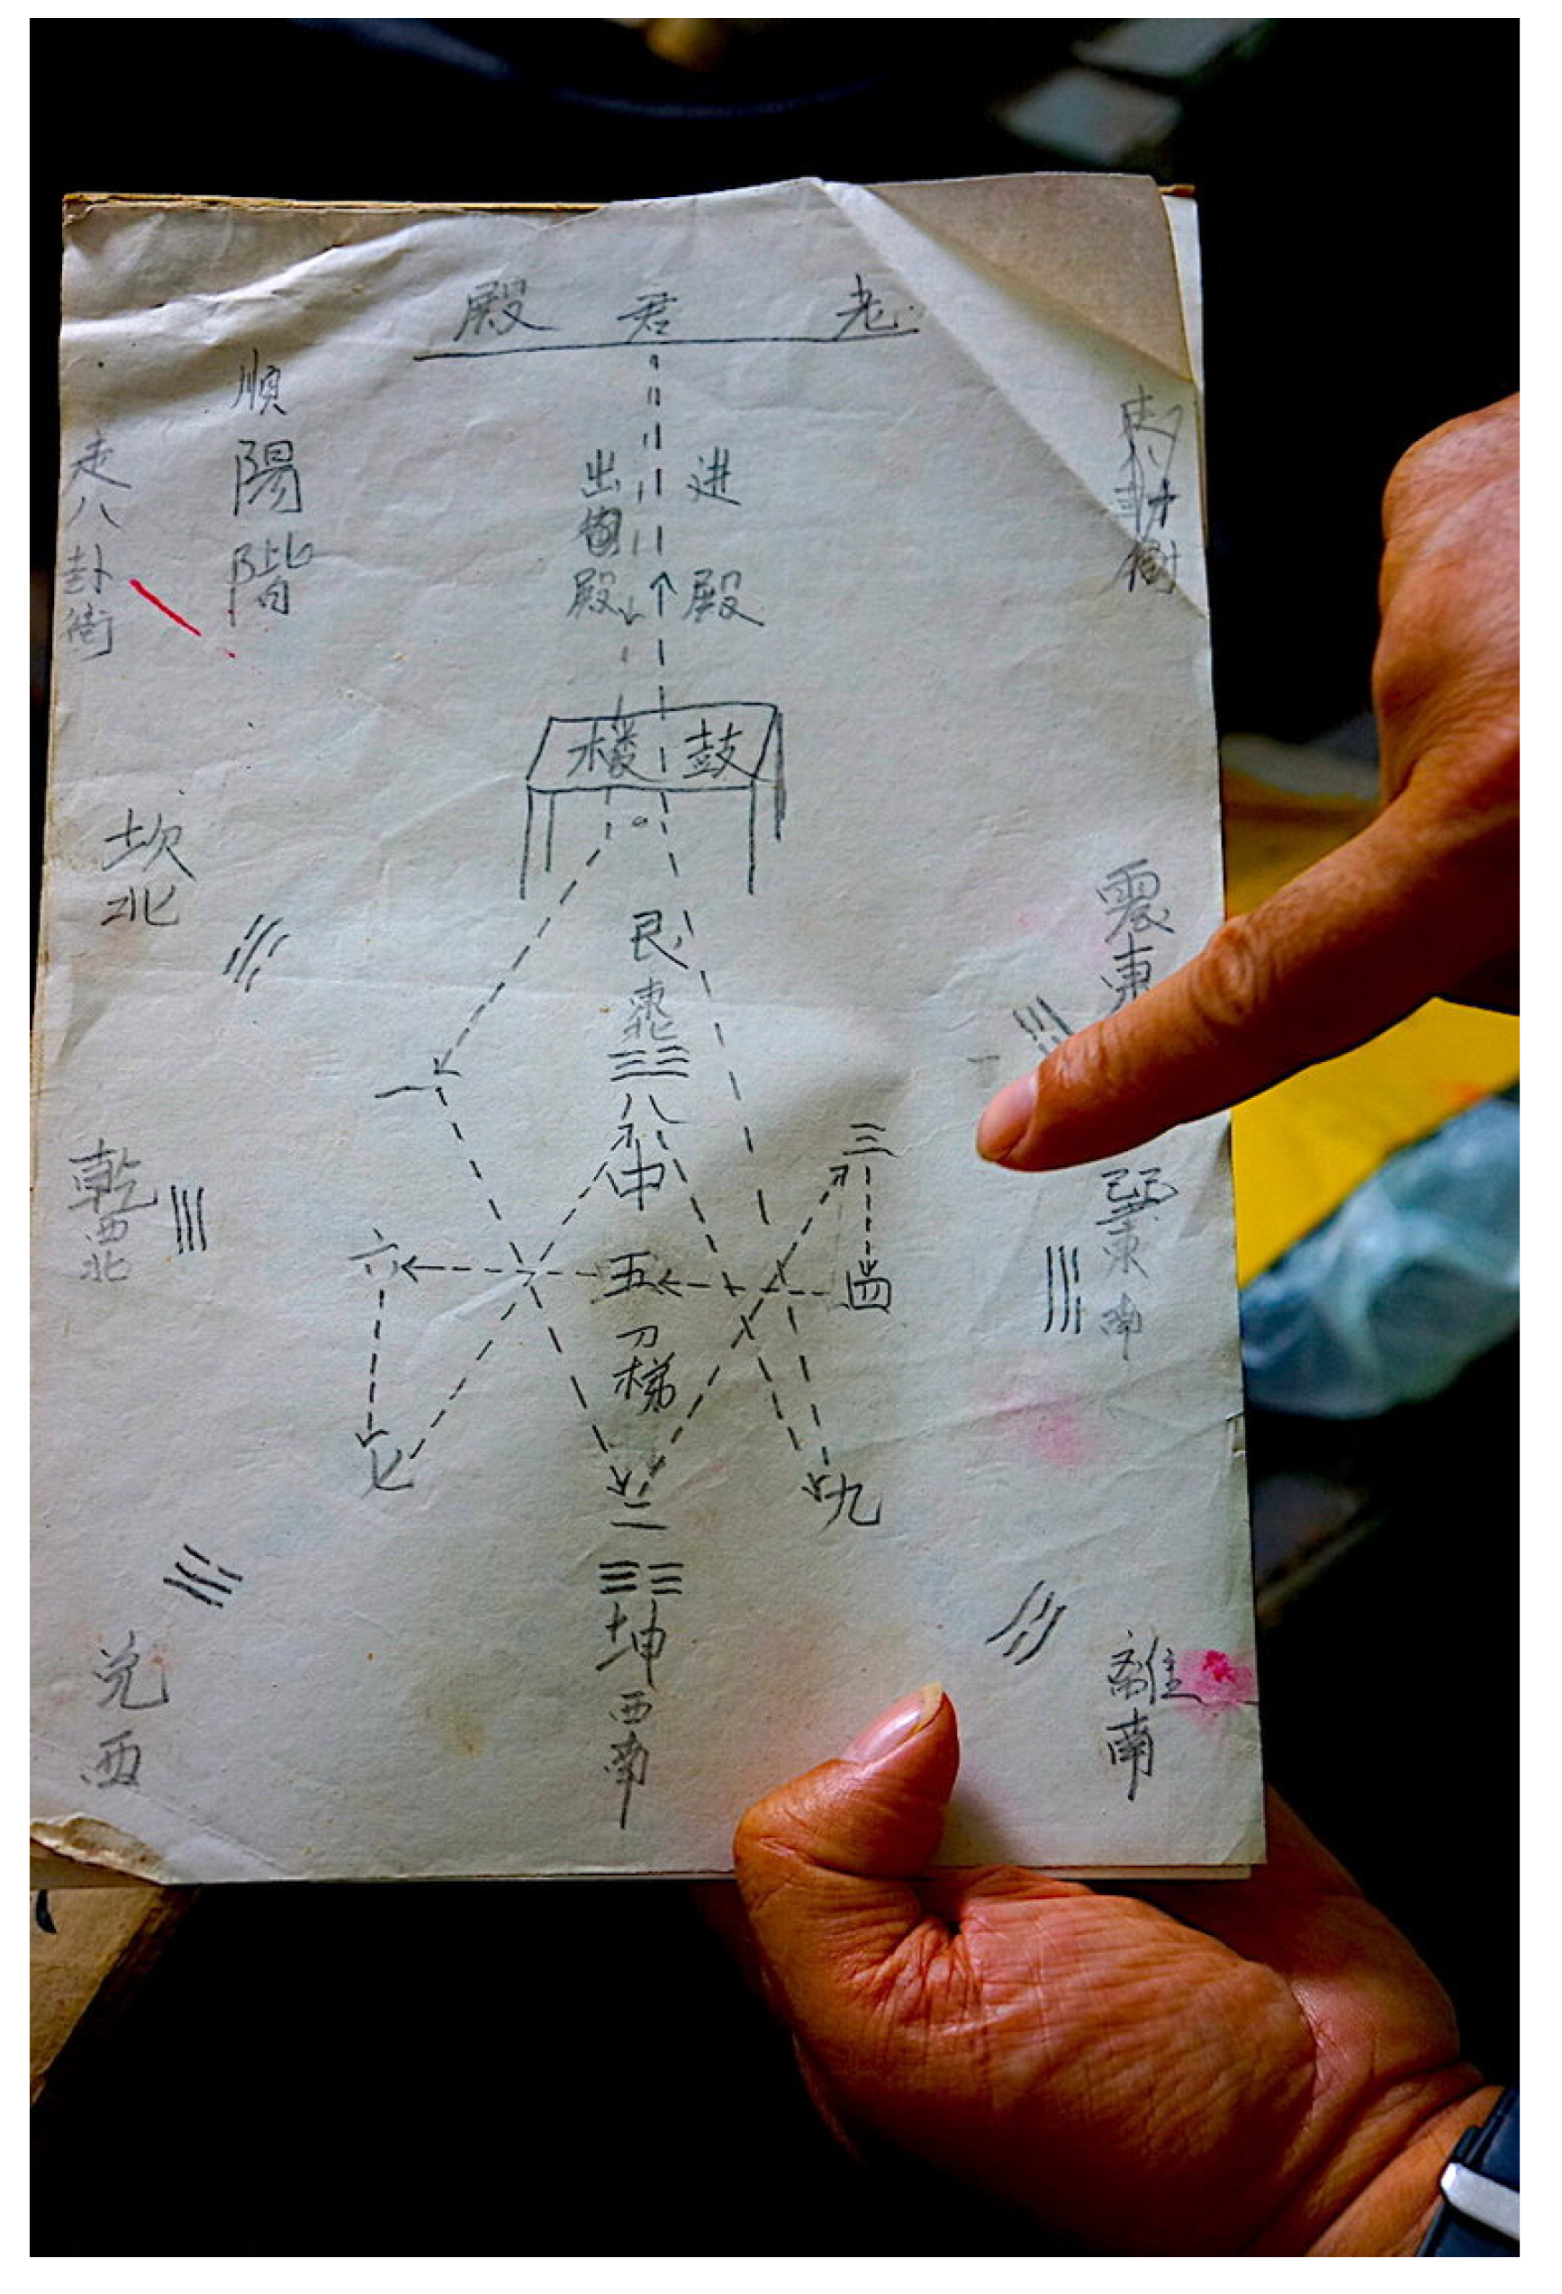 老君殿
順陽階
走八卦街
进殿
出殿
鼓楼
坎北
艮東北
震東
一
八
中
三
乾西北
六
五
四
巽東南
刀梯
七
二
九
兑西
坤西南
離南